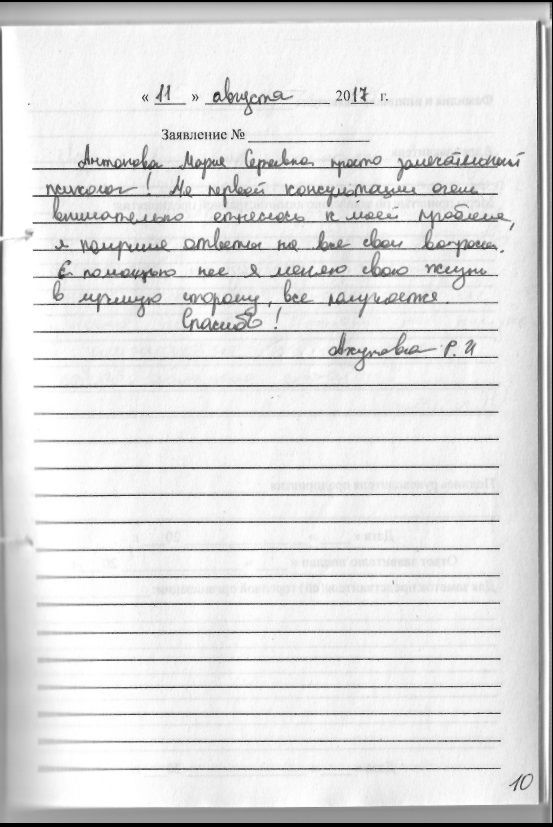 « 11 » августа 2017 г.
Заявление №
Антонова Мария Сергеевна просто замечательный
психолог! На первой консультации очень
внимательно отнеслась к моей проблеме,
я получила ответы на все свои вопросы.
С помощью нее я меняю свою жизнь
в лучшую сторону, все получается.
Спасибо!
Р. И
10